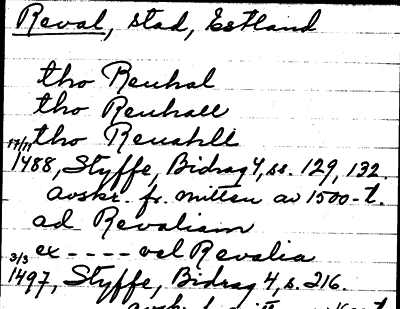 Reval, stad, Estland
tho Reuhal
tho Reuhall
tho Reuahll
17/11 1488, Styffe, Bidrag 4, ss. 129, 132.
avskr. fr. mitten av 1500-t.
ad Revaliam
3/3 ex - - - - vel Revalia
1497, Styffe, Bidrag 4, s. 216.